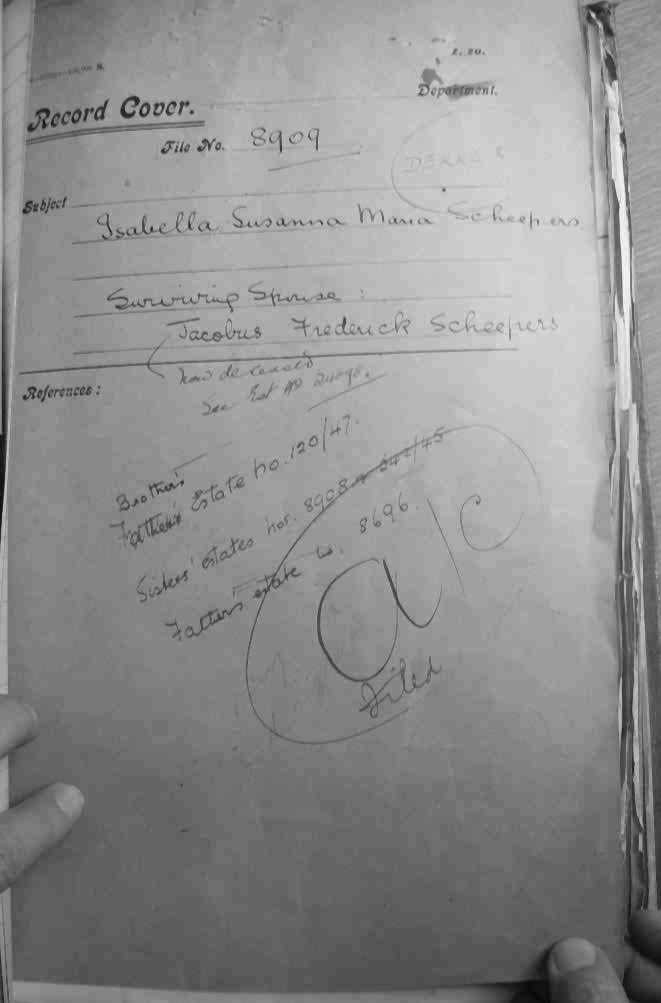 Z. 20.
Department.
Record Cover.
File No. 8909
Subject
Isabella Susanna Maria Scheepers
Surviving Spouse :
Jacobus Frederick Scheepers
now deceased
References :
See Est No
Brother's
Father's Estate no. 120/47.
Sisters' estates nos. 8908
Father's estate no. 8696.
a/c
Filed